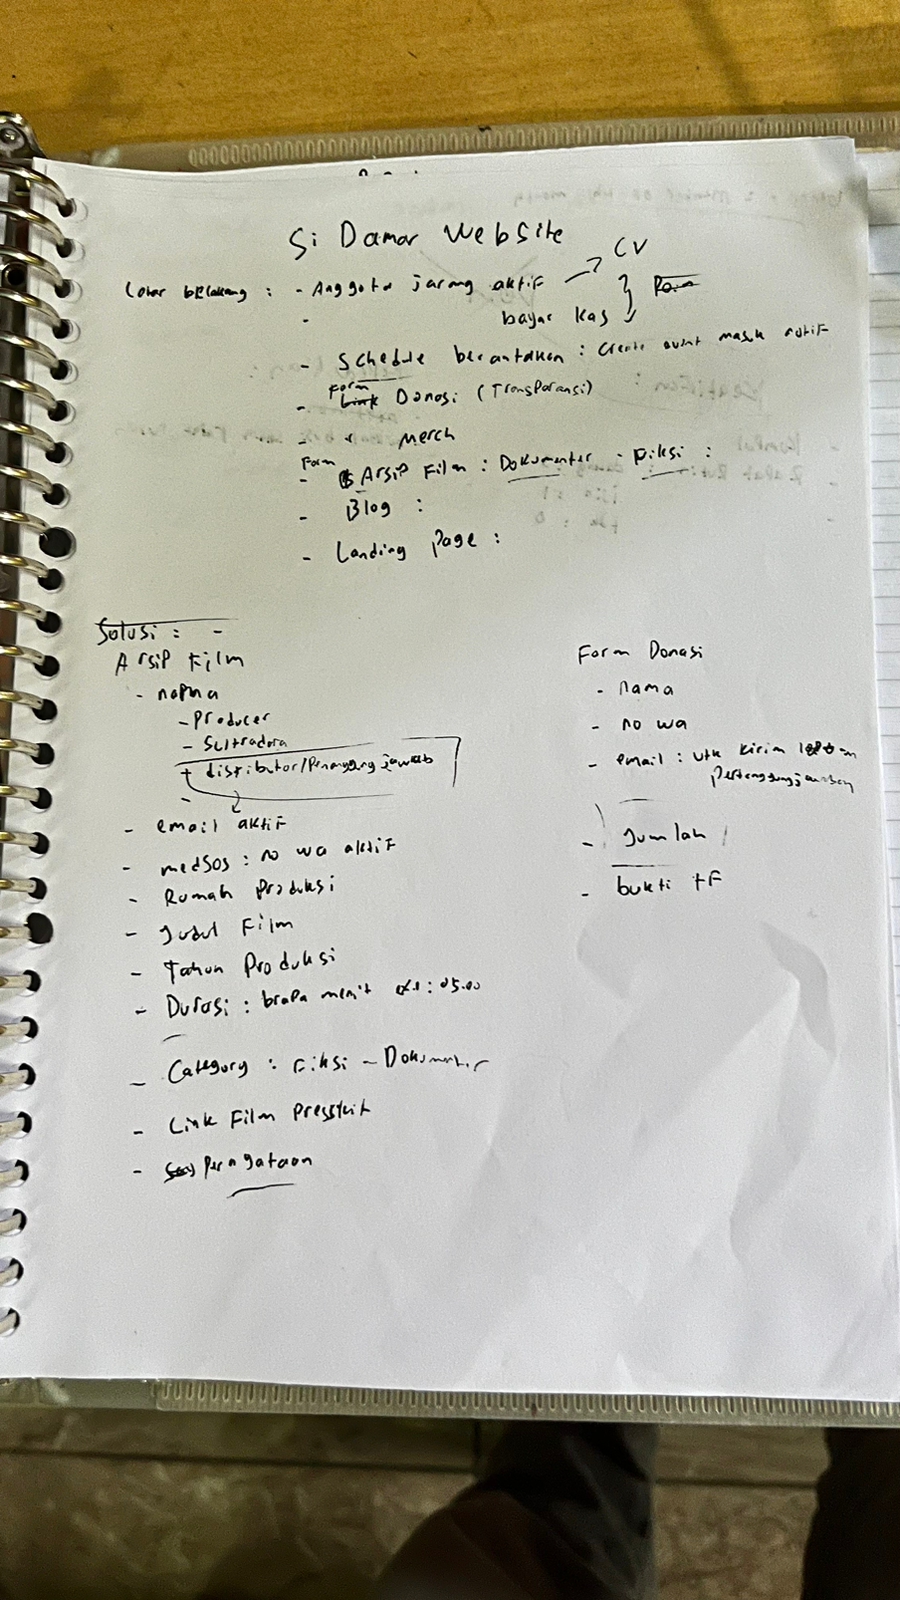 Si Damar Website
Latar belakang : - Anggota jarang aktif → CV
- bayar kas
- Schedule berantakan : Create event masuk notif
- Form Donasi (Transparansi)
- " Merch
- Form Arsip Film : Dokumenter - Fiksi :
- Blog :
- Landing Page :
Solusi : -
Arsip Film
- nama
- Producer
- Sutradara
+ distributor/Penanggung jawab
-
- email aktif
- medsos : no wa aktif
- Rumah Produksi
- Judul Film
- Tahun Produksi
- Durasi : brapa menit ex : 05.00
- Category : Fiksi - Dokumenter
- Link Film Presskit
- Pernyataan
Form Donasi
- nama
- no wa
- email : utk kirim laporan
Pertanggungjawaban
- Jumlah
- bukti tF